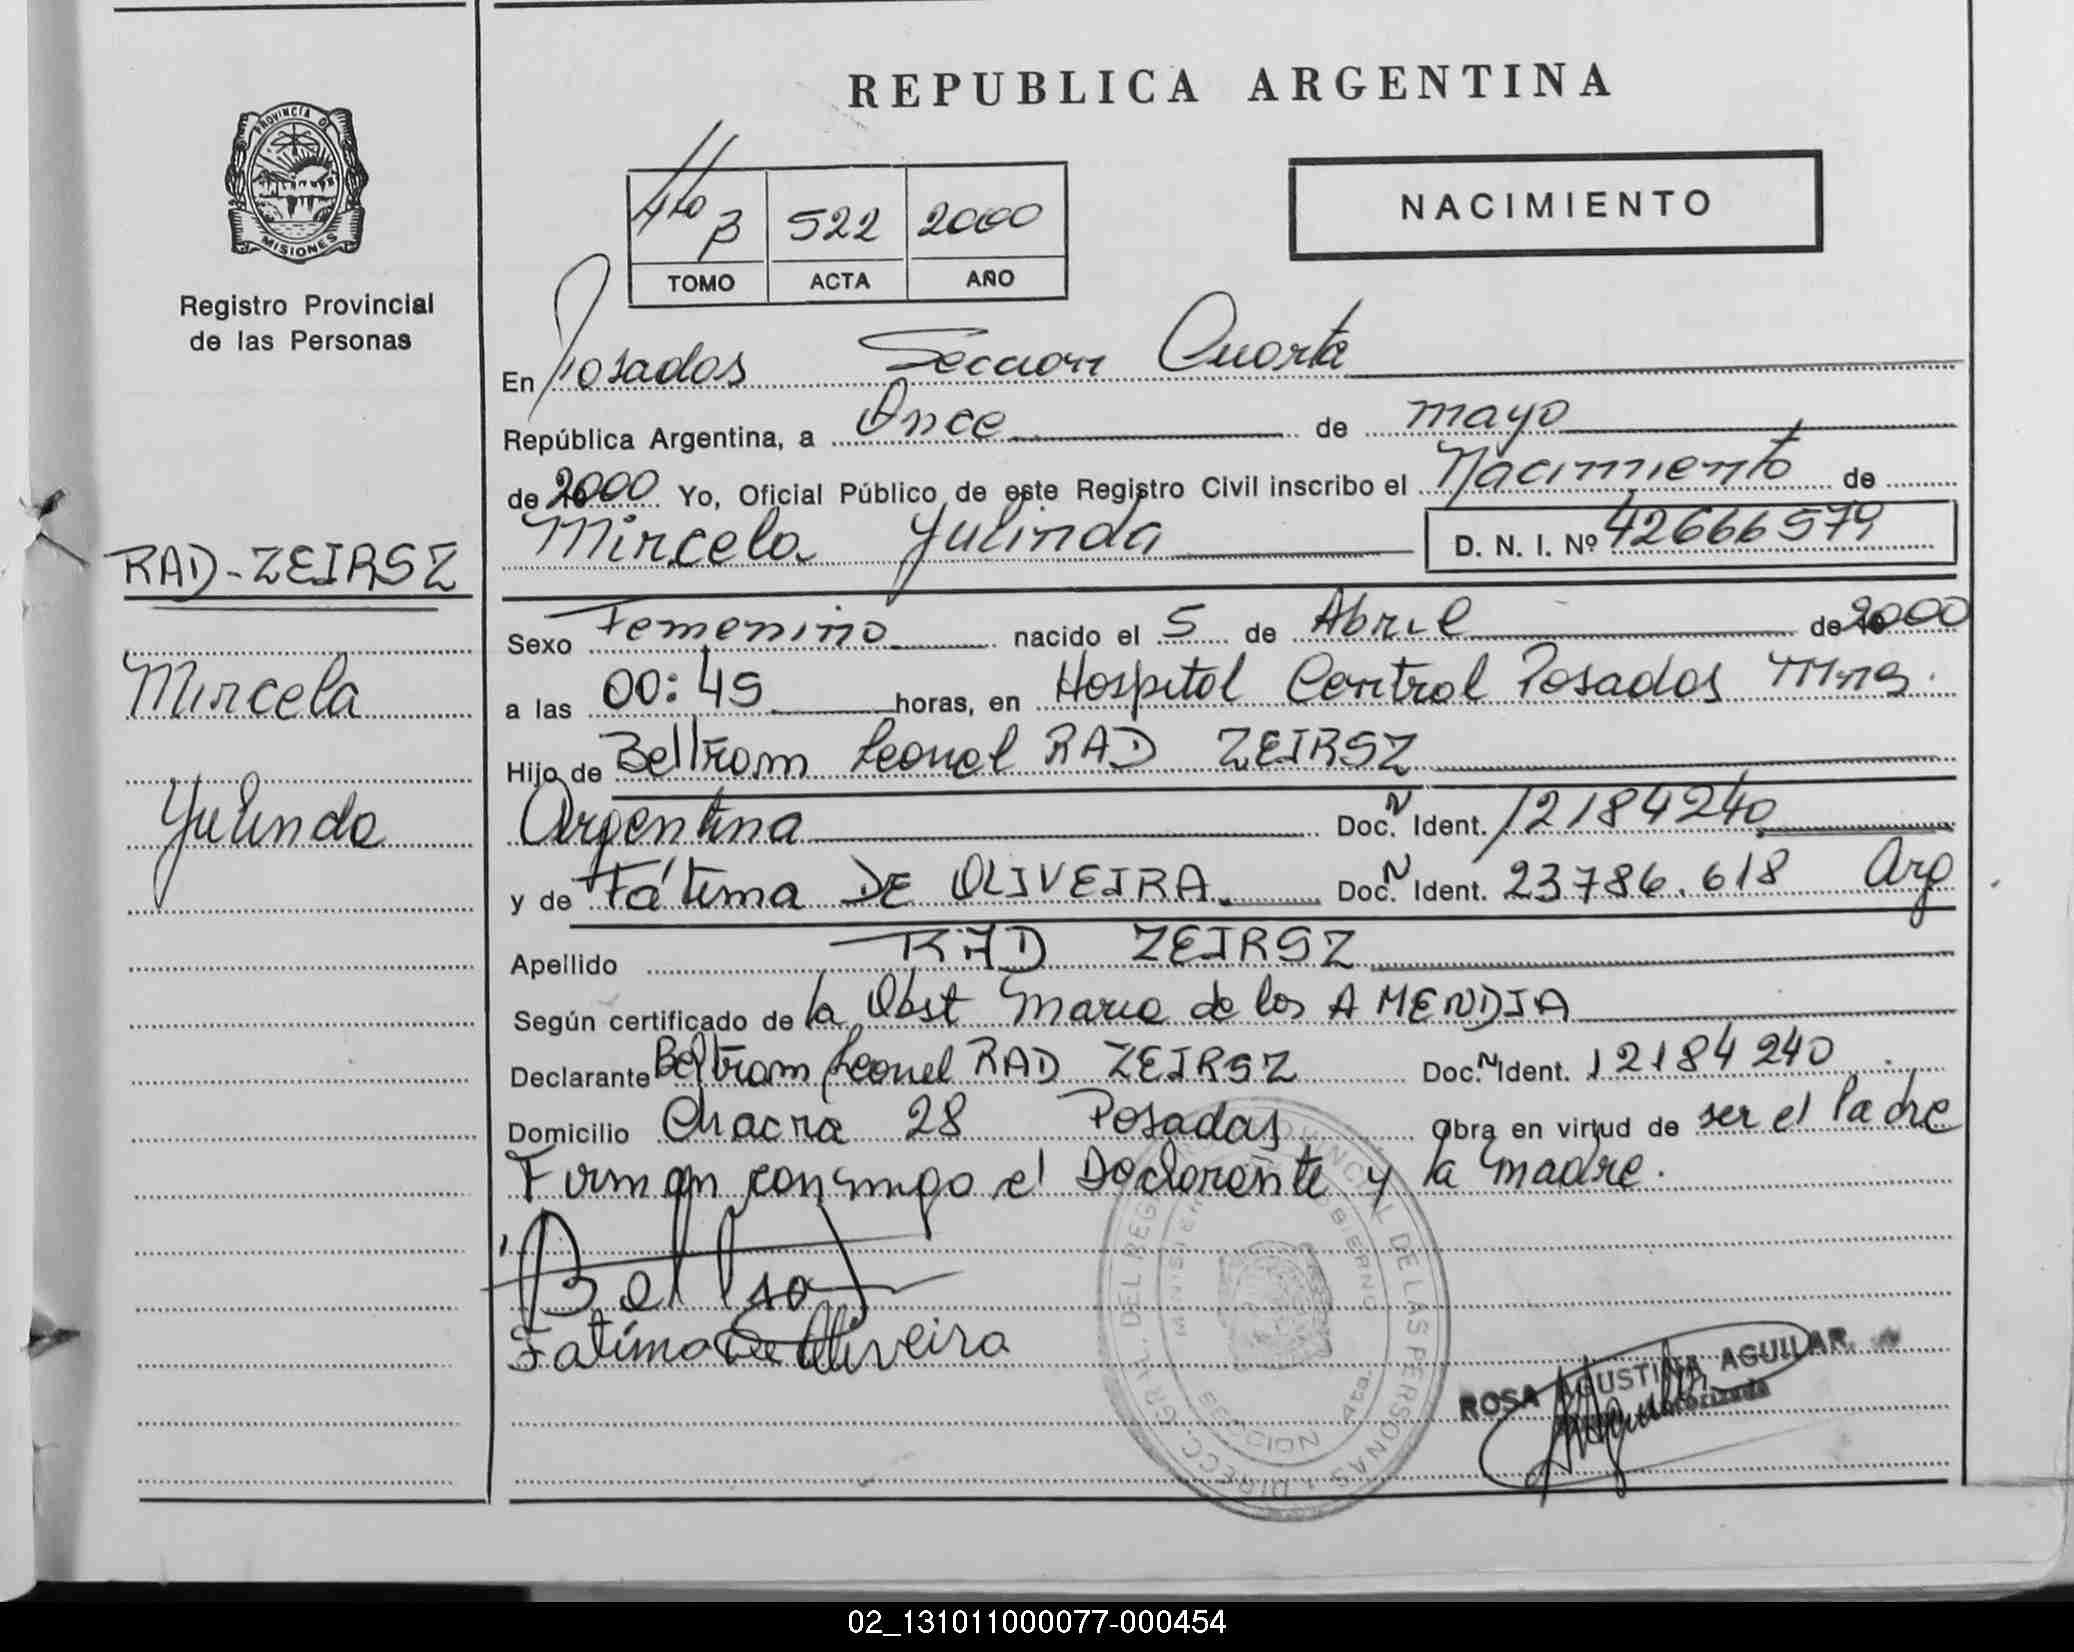 REPUBLICA ARGENTINA
PROVINCIA DE
MISIONES
Registro Provincial
de las Personas
NACIMIENTO
4to B 522 2000
TOMO ACTA AÑO
En Posadas Seccion Cuarta
República Argentina, a Once de mayo
de 2000 Yo, Oficial Público de este Registro Civil inscribo el Nacimiento de
Mircela Yulinda D. N. I. Nº 42666579
RAD-ZEIRSZ
Mircela
Yulinda
Sexo Femenino nacido el 5 de Abril de 2000
a las 00:45 horas, en Hospital Central Posadas Mnes.
Hijo de Beltram Leonel RAD ZEIRSZ
Argentina Doc. N Ident. 12184240
y de Fátima DE OLIVEIRA Doc. N Ident. 23786.618 Arg
Apellido RAD ZEIRSZ
Según certificado de la Obst Maria de los A MENDIA
Declarante Beltram Leonel RAD ZEIRSZ Doc. N Ident. 12184240
Domicilio Chacra 28 Posadas obra en virtud de ser el Padre
Firman conmigo el Declarante y la madre.
Fatima De Oliveira
DIRECC. GRAL. DEL REG. PROVINCIAL DE LAS PERSONAS
MINISTERIO GOBIERNO
SECCION 4ta.
ROSA AGUSTINA AGUILAR
Autorizada
02_131011000077-000454